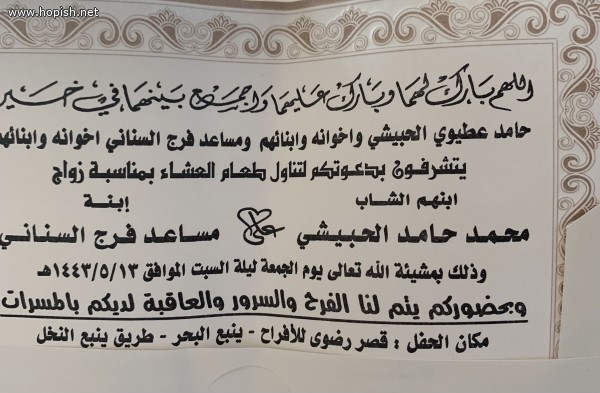 www.hopish.net
اللهم بارك لهما وبارك عليهما واجمع بينهما في خير
حامد عطيوي الحبيشي واخوانه وابنائهم ومساعد فرج السناني اخوانه وابنائهم
يتشرفون بدعوتكم لتناول طعام العشاء بمناسبة زواج
ابنهم الشاب إبنة
محمد حامد الحبيشي على مساعد فرج السناني
وذلك بمشيئة الله تعالى يوم الجمعة ليلة السبت الموافق ١٤٤٣/٥/١٣هـ
وبحضوركم يتم لنا الفرح والسرور والعاقبة لديكم بالمسرات
مكان الحفل : قصر رضوى للأفراح - ينبع البحر - طريق ينبع النخل